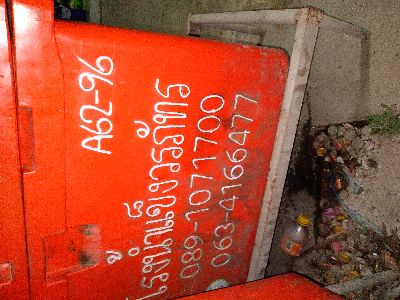 A62-96
โรงน้ำแข็งวรภัทร
089-1071700
063-4166477